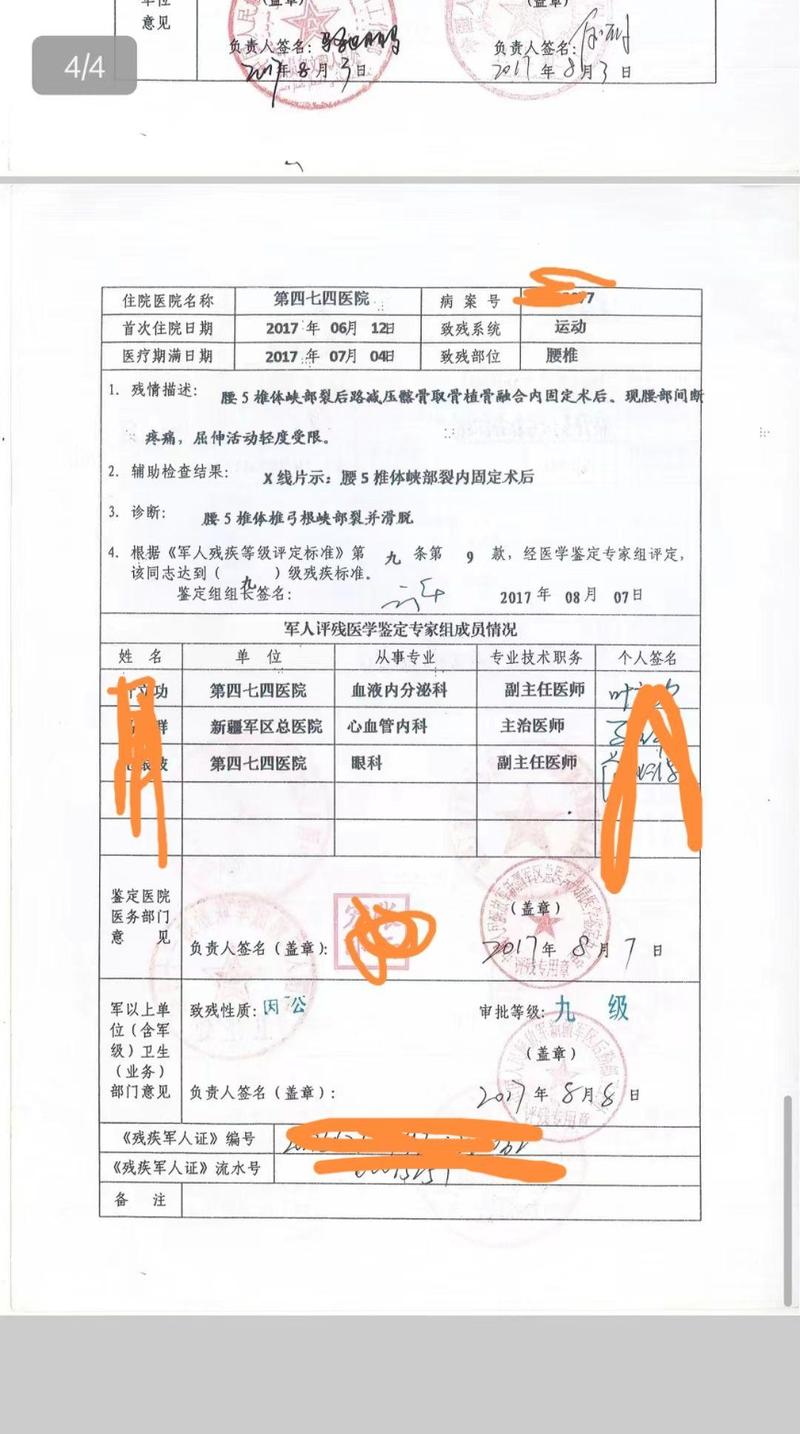 单位
意见
（盖章）
（盖章）
4/4
负责人签名：
负责人签名：
2017年8月3日
2017年8月3日
住院医院名称 第四七四医院 病案号 77
首次住院日期 2017年06月12日 致残系统 运动
医疗期满日期 2017年07月04日 致残部位 腰椎
1. 残情描述： 腰5椎体峡部裂后路减压髂骨取骨植骨融合内固定术后。现腰部间断
疼痛，屈伸活动轻度受限。
2. 辅助检查结果： X线片示：腰5椎体峡部裂内固定术后
3. 诊断： 腰5椎体椎弓根峡部裂并滑脱
4. 根据《军人残疾等级评定标准》第 九 条第 9 款，经医学鉴定专家组评定，
该同志达到（ 九 ）级残疾标准。
鉴定组组长签名： 2017年08月07日
军人评残医学鉴定专家组成员情况
姓名 单位 从事专业 专业技术职务 个人签名
功 第四七四医院 血液内分泌科 副主任医师 叶
群 新疆军区总医院 心血管内科 主治医师
第四七四医院 眼科 副主任医师
鉴定医院
医务部门
意见
（盖章）
负责人签名（盖章）： 2017年8月7日
评残专用章
军以上单
位（含军
级）卫生
（业务）
部门意见
致残性质：因公 审批等级：九级
（盖章）
负责人签名（盖章）： 2017年8月8日
《残疾军人证》编号
《残疾军人证》流水号
备注